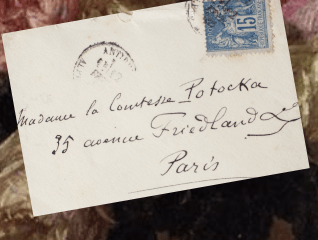 15
Madame la Comtesse Potocka
35 avenue Friedland
Paris